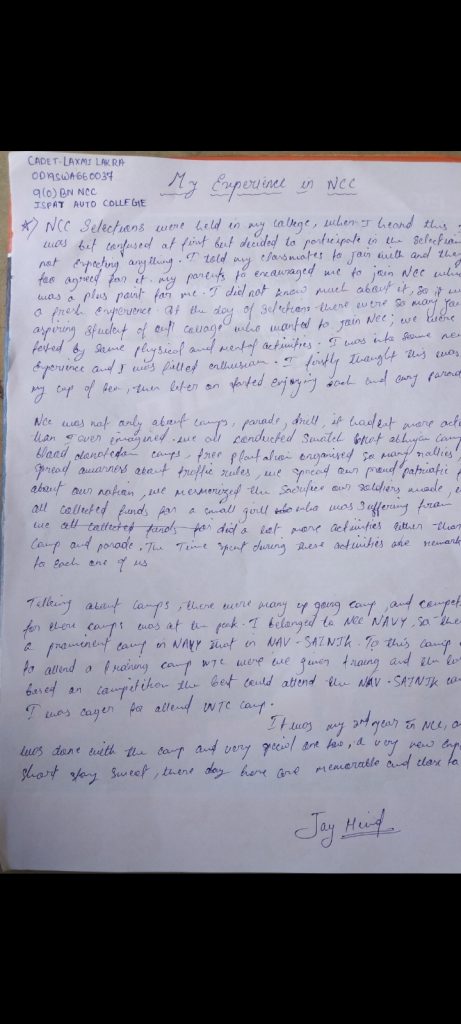 CADET-LAXMI LAKRA
OD19SWA660037
9(O) BN NCC
ISPAT AUTO COLLEGE
My Experience in NCC
NCC Selections were held in my college, when I heard this
was bit confused at first but decided to participate in the selection
not expecting anything. I told my classmates to join with and they
too agreed for it. my parents to encouraged me to join NCC which
was a plus point for me. I did not know much about it, so it w
a fresh experience. At the day of selections there were so many
aspiring student of our collage who wanted to join NCC; we were
tested by some physical and mental activities. I was into some new
experience and I was filled enthusiasm. I firstly thought this was
my cup of tea, then later on started enjoying each and every parade
NCC was not only about camps, parade, drill, it had lot more act
than I ever imagined. we all conducted Swatch bhat abhiyan camp
blood donation camps, tree plantation organised so many rallies,
spread awarness about traffic rules, we spread our proud patriotic
about our nation, we mesmerized the sacrifice our soldiers made,
all collected funds for a small girl who was suffering from
we all collected funds for did a lot more activities other than
camp and parade. The Time spent during these activities are remark
to each one of us
Talking about camps, there were many up going camp, and compet
for there camps was at the peak. I belonged to NCC NAVY, so the
a prominent camp in NAVY that in NAV-SAINIK. To this camp
to attend a training camp were we given traing and the
based on competition the best could attend the NAV-SAINIK
I was eager to attend camp.
It was my 3rd year in NCC, a
was done with the camp and very special one too, a very new exp
short stay sweet, there day here are memorable and close to
Jay Hind